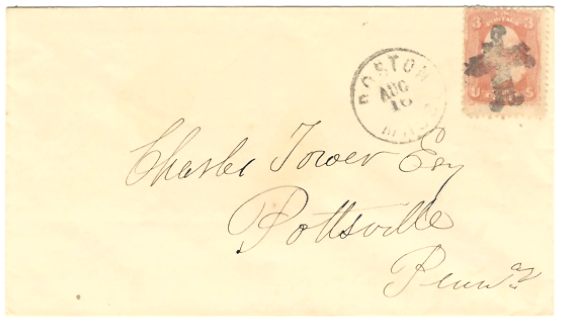 BOSTON
AUG
16
MASS
3 3
U S
Charles Tower Esq
Pottsville
Penna